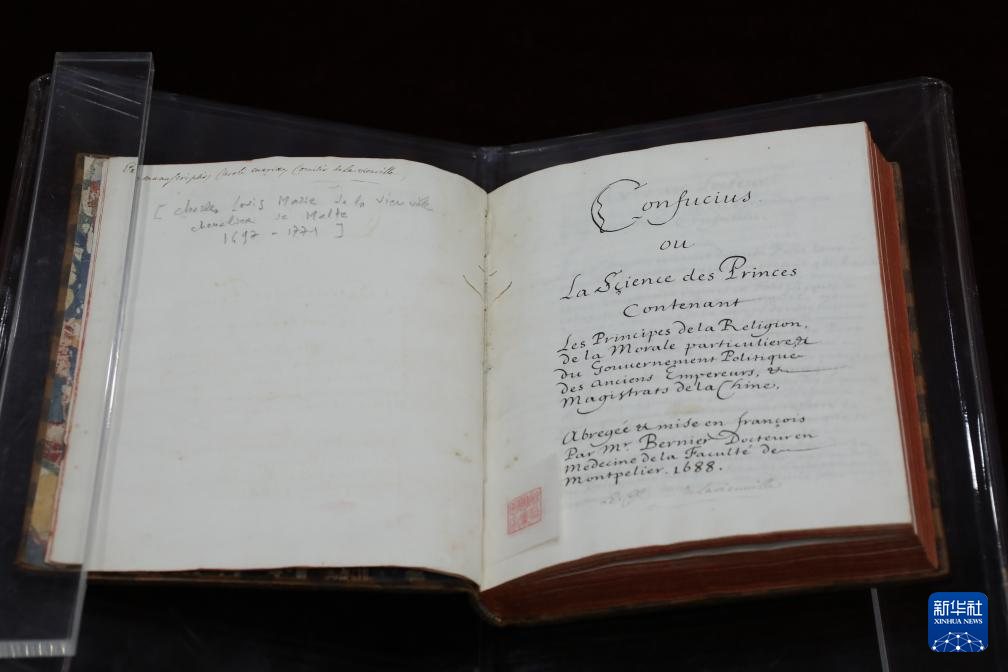 Ex manuscriptis Caroli mariae Comitis de la vieuville,
[ Charles Louis Marie de la vieuville
chevalier de Malte
1697 - 1771 ]
Confucius.
ou
La Sçience des Princes
Contenant
Les Principes de la Religion,
de la Morale particuliere, &
du Gouvernement Politique
des anciens Empereurs, &
Magistrats de la Chine.
Abregée & mise en françois
Par Mr. Bernier Docteur en
Medecine de la Faculté de
Montpelier. 1688.
新华社
XINHUA NEWS